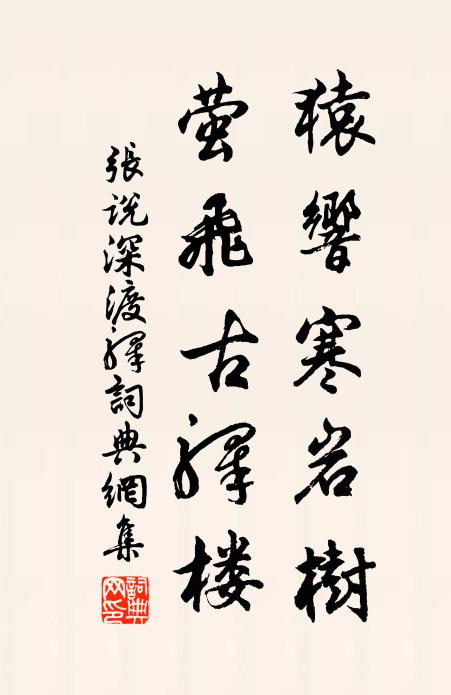 猿響寒岩樹
萤飛古驛楼
張说深渡驛詞典網集
詞典网印